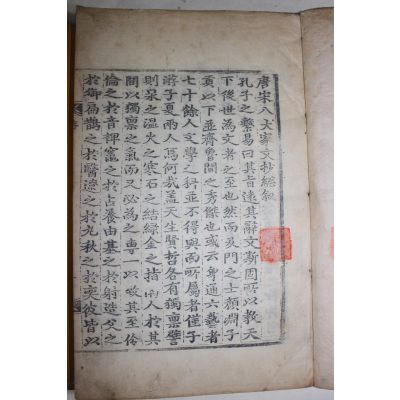 唐宋八大家文抄總敘
孔子之繫易曰其旨遠其辭文斯固所以敎天
下後世爲文者之至也然而及門之士顏淵子
貢以下並齊魯間之秀傑也或云身通六藝者
七十餘人文學之科並不得與而所屬者僅子
游子夏兩人焉何哉盖天生賢哲各有獨禀譬
則泉之溫火之寒石之結綠金之指南人於其
間以獨禀之氣而又必爲之專一以致其至伶
倫之於音裨竈之於占養由基之於射造父之
於御扁鵲之於醫遼之於丸秋之於奕彼皆以